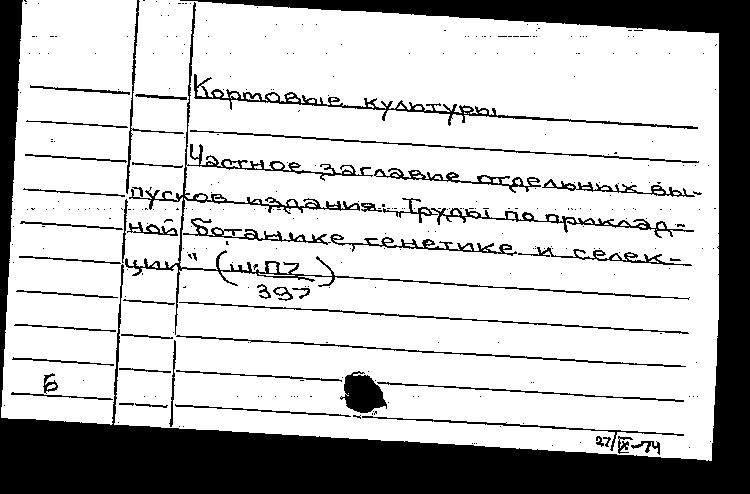 Кормовые культуры
Частное заглавие отдельных вы-
пусков издания: „Труды по приклад-
ной ботанике, генетике и селек-
ции" (шк П7/397)
Б
27/IX-74